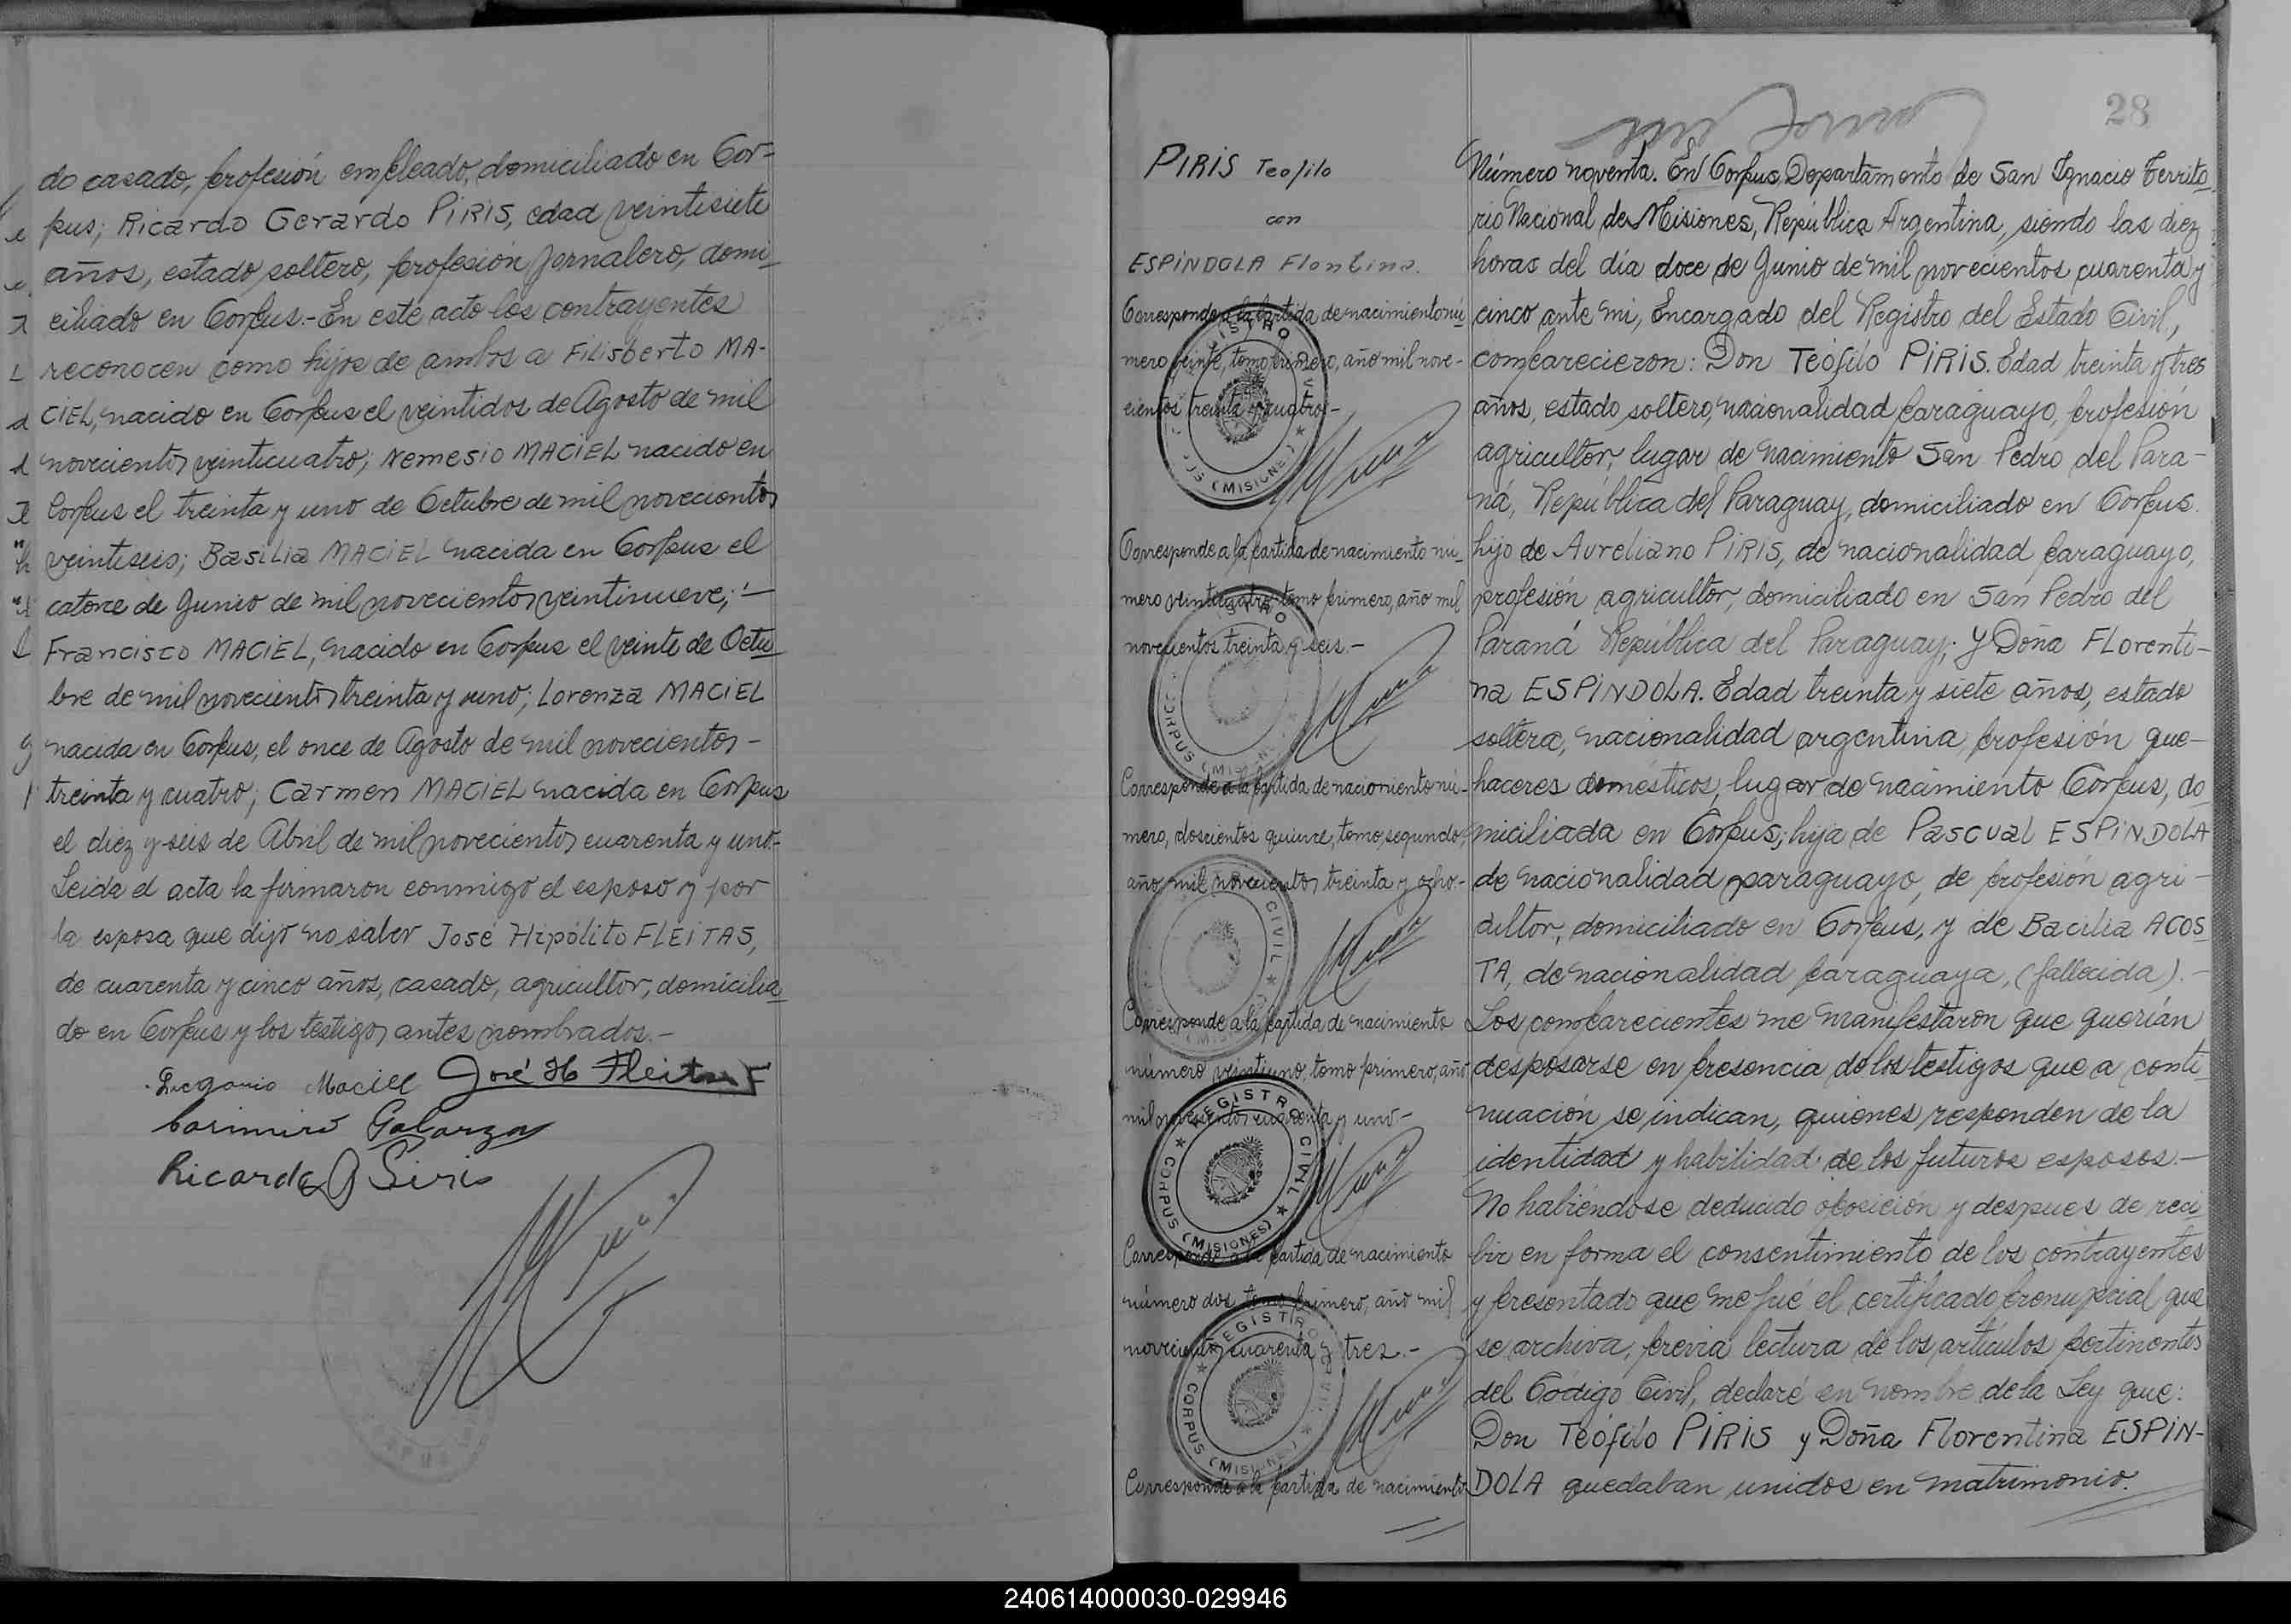 do casado, profesión empleado, domiciliado en Cor-
pus; Ricardo Gerardo PIRIS, edad veintisiete
años, estado soltero, profesión jornalero, domi-
ciliado en Corpus.- En este acto los contrayentes
reconocen como hijos de ambos a Filisberto MA-
CIEL, nacido en Corpus el veintidos de Agosto de mil
novecientos veinticuatro; Nemesio MACIEL nacido en
Corpus el treinta y uno de Octubre de mil novecientos
veintiseis; Basilia MACIEL nacida en Corpus el
catorce de Junio de mil novecientos veintinueve;-
Francisco MACIEL, nacido en Corpus el veinte de Octu-
bre de mil novecientos treinta y uno; Lorenza MACIEL
nacida en Corpus, el once de Agosto de mil novecientos-
treinta y cuatro; Carmen MACIEL nacida en Corpus
el diez y seis de Abril de mil novecientos cuarenta y uno-
Leida el acta la firmaron conmigo el esposo y por
la esposa que dijo no saber José Hipólito FLEITAS,
de cuarenta y cinco años, casado, agricultor, domicilia-
do en Corpus y los testigos antes nombrados.-
Maciel José H Fleitas F
Casimiro Galarza
Ricardo G Piris
28
PIRIS Teofilo
con
ESPINDOLA Florentina.
Corresponde a la partida de nacimiento nú-
mero veinte, tomo primero, año mil nove-
cientos treinta y cuatro.-
REGISTRO CIVIL CORPUS (MISIONES)
Corresponde a la partida de nacimiento nú-
mero veinticuatro tomo primero, año mil
novecientos treinta y seis.-
CORPUS (MISIONES)
Corresponde a la partida de nacimiento nú-
mero, doscientos quince, tomo segundo,
año mil novecientos treinta y ocho.-
CIVIL
Corresponde a la partida de nacimiento
número veintiuno, tomo primero, año
mil novecientos cuarenta y uno-
REGISTRO CIVIL CORPUS (MISIONES)
Corresponde a la partida de nacimiento
número dos, tomo primero, año mil
novecientos cuarenta y tres.-
REGISTRO CIVIL CORPUS (MISIONES)
Corresponde a la partida de nacimiento
Número noventa. En Corpus, Departamento de San Ignacio Territo-
rio Nacional de Misiones, República Argentina, siendo las diez
horas del día doce de Junio de mil novecientos cuarenta y
cinco ante mi, Encargado del Registro del Estado Civil,
comparecieron: Don Teófilo PIRIS. Edad treinta y tres
años, estado soltero, nacionalidad paraguayo, profesión
agricultor, lugar de nacimiento San Pedro del Para-
ná, República del Paraguay, domiciliado en Corpus.
hijo de Aureliano PIRIS, de nacionalidad paraguayo,
profesión agricultor, domiciliado en San Pedro del
Paraná República del Paraguay; y Doña Florenti-
na ESPINDOLA. Edad treinta y siete años, estado
soltera, nacionalidad argentina profesión que-
haceres domésticos, lugar de nacimiento Corpus, do-
miciliada en Corpus; hija de Pascual ESPINDOLA
de nacionalidad paraguayo, de profesión agri-
cultor, domiciliado en Corpus, y de Bacilia ACOS-
TA, de nacionalidad paraguaya, (fallecida).-
Los comparecientes me manifestaron que querían
desposarse en presencia de los testigos que a conti-
nuación se indican, quienes responden de la
identidad y habilidad de los futuros esposos.-
No habiéndose deducido oposición y despues de reci-
bir en forma el consentimiento de los contrayentes
y presentado que me fué el certificado prenupcial que
se archiva, previa lectura de los artículos pertinentes
del Código Civil, declaré en nombre de la Ley que:
Don Teófilo PIRIS y Doña Florentina ESPIN-
DOLA quedaban unidos en matrimonio.
240614000030-029946